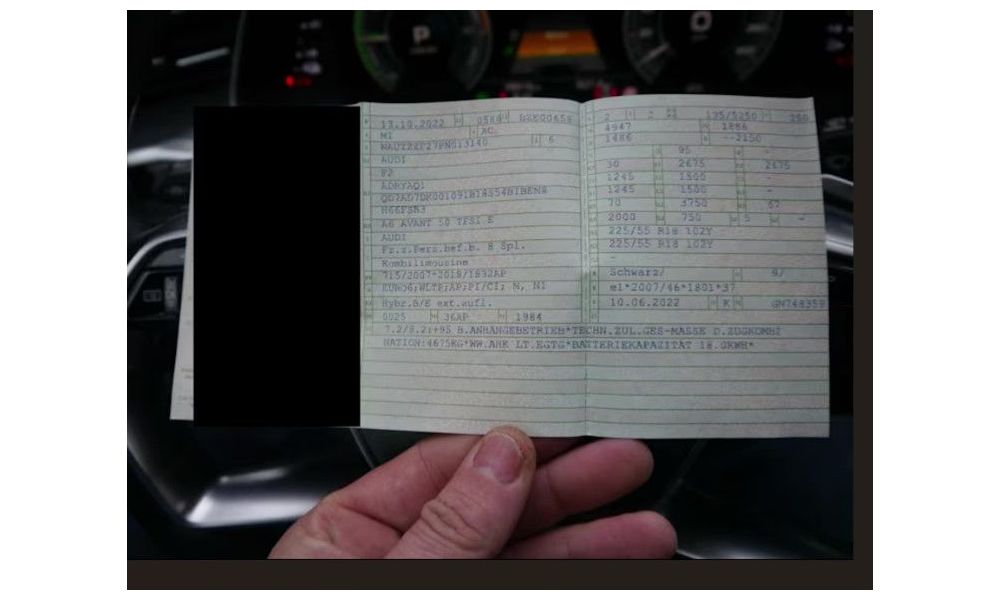 P
13.10.2022 0588
M1 AC
6
AUDI
F2
A6 AVANT 50 TFSI E
AUDI
Fz.z.Pers.bef.b. 8 Spl.
Kombilimousine
715/2007*2018/1832AP
EURO6;WLTP;AP;PI/CI; M, N1
Hybr.B/E ext.aufl.
0025 36AP 1984
7.2/8.2:+95 B.ANHANGEBETRIEB*TECHN.ZUL.GES-MASSE D.ZUGKOMBI
NATION:4675KG*WW.AHK LT.EGTG*BATTERIEKAPAZITAT 18.0KWH*
2 2 195/5250 250
4947 1886
1486 --2150
95 -
30 2675 2675
1245 1500 -
1245 1500 -
70 3750 67
2000 750 5 -
225/55 R18 102Y
225/55 R18 102Y
-
Schwarz/ 9/
e1*2007/46*1801*37
10.06.2022 K GN748359